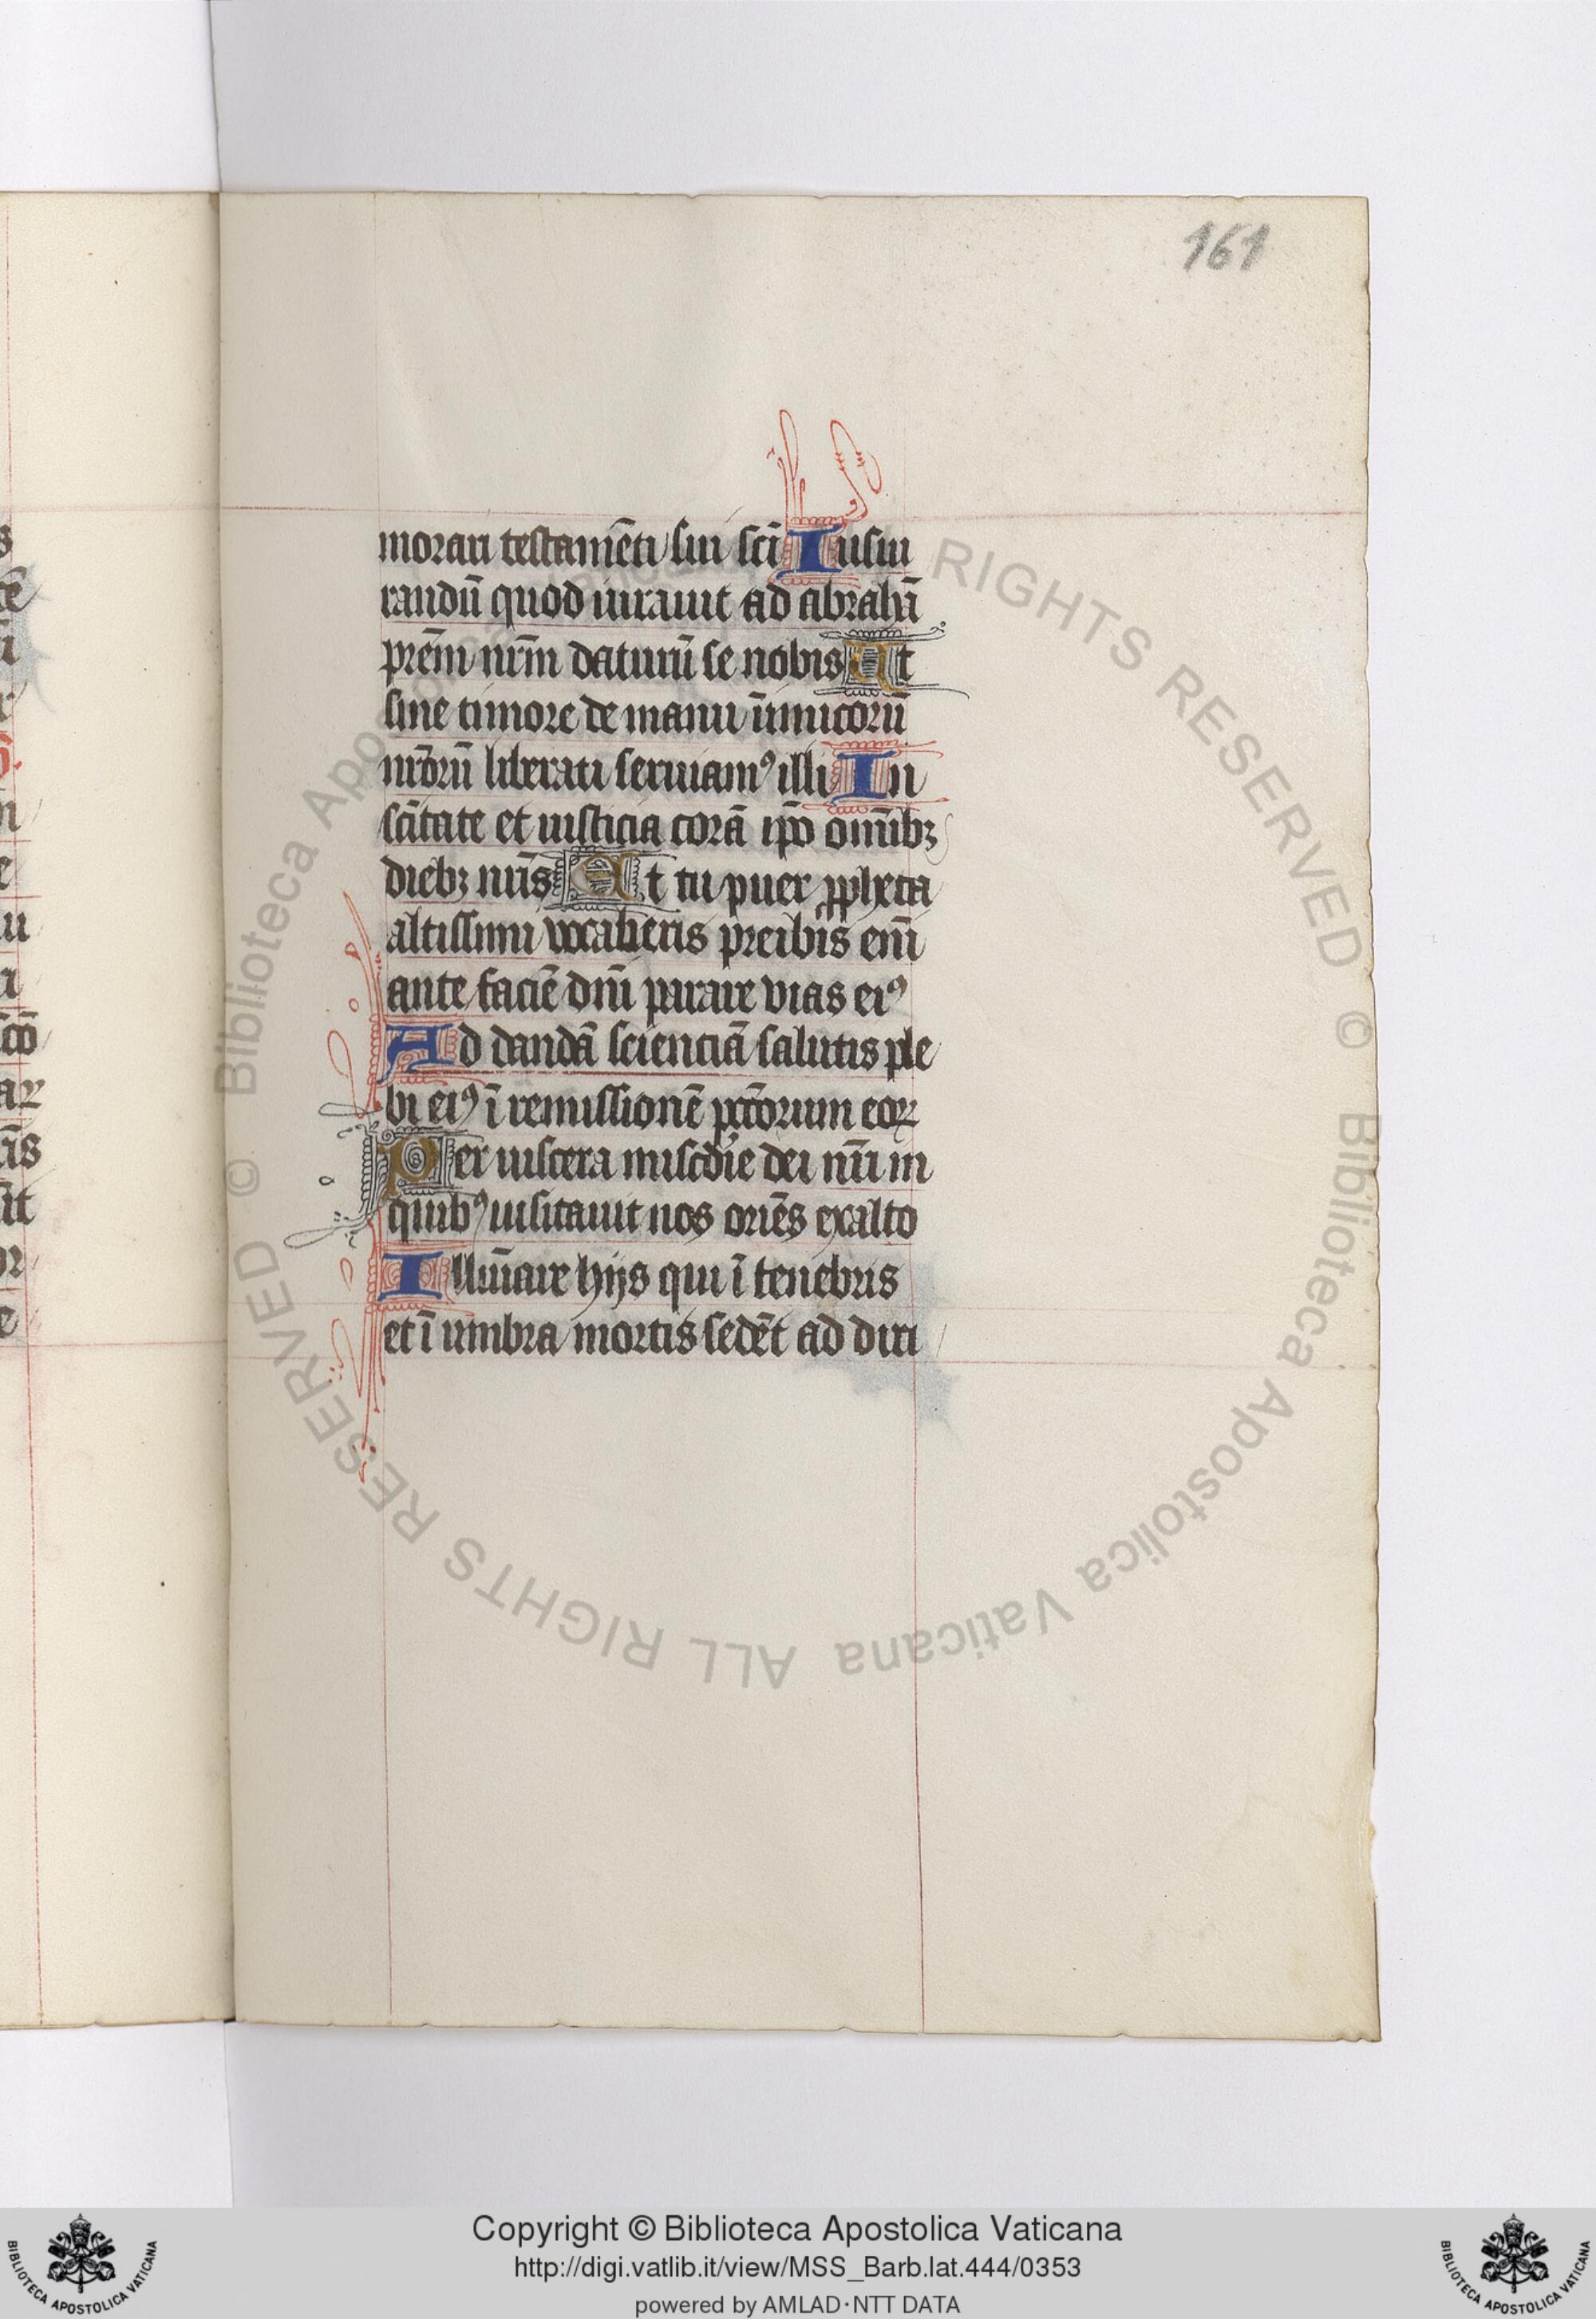 161
morari testamēti sui sc̄i Iusiu
randū quod iurauit ad abrahā
prēm nr̄m daturū se nobis Ut
sine timore de manu īimicorū
nr̄orū liberati seruiamꝰ illi In
sc̄itate et iusticia corā ip̄o om̄ibꝫ
diebꝫ nr̄is Et tu puer ꝓpheta
altissimi vocaberis preibis eni̅
ante faciē dn̄i parare vias eiꝰ
Ad dandā scienciā salutis ple
bi eiꝰ ī remissionē pcc̄torum eoꝝ
Per uiscera misc̄die dei nr̄i in
quibꝰ uisitauit nos oriēs exalto
Illūiare hijs qui ī tenebris
et ī umbra mortis sedēt ad diri
© Biblioteca Apostolica Vaticana ALL RIGHTS RESERVED
© Biblioteca Apostolica Vaticana ALL RIGHTS RESERVED
Copyright © Biblioteca Apostolica Vaticana
http://digi.vatlib.it/view/MSS_Barb.lat.444/0353
powered by AMLAD·NTT DATA
BIBLIOTECA APOSTOLICA VATICANA
BIBLIOTECA APOSTOLICA VATICANA